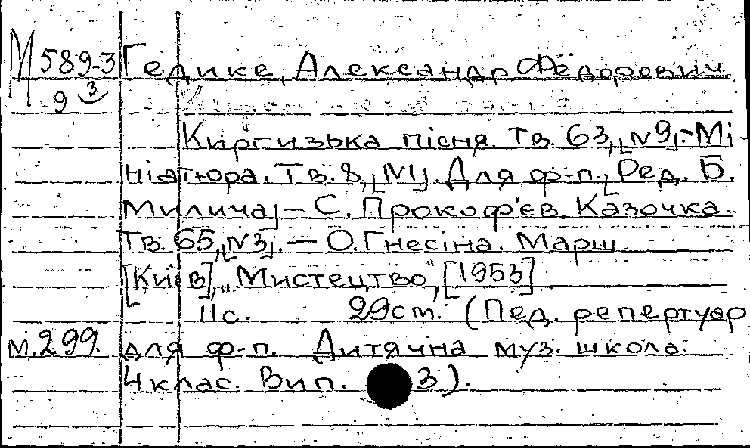 М 589-3 Гедике, Александр Фёдорович
9 3
Киргизька пісня. Тв. 63, [№9].-Мі
ніатюра. Тв. 8, [№1]. Для ф-п. [Ред. Б.
Милича] - С. Прокоф'єв. Казочка.
Тв. 65, [№3]. - О. Гнесіна. Марш.
[Київ], "Мистецтво", [1953].
11с. 29см. (Пед. репертуар
м.299. для ф-п. Дитячна муз. школа.
4 клас. Вип. 3).